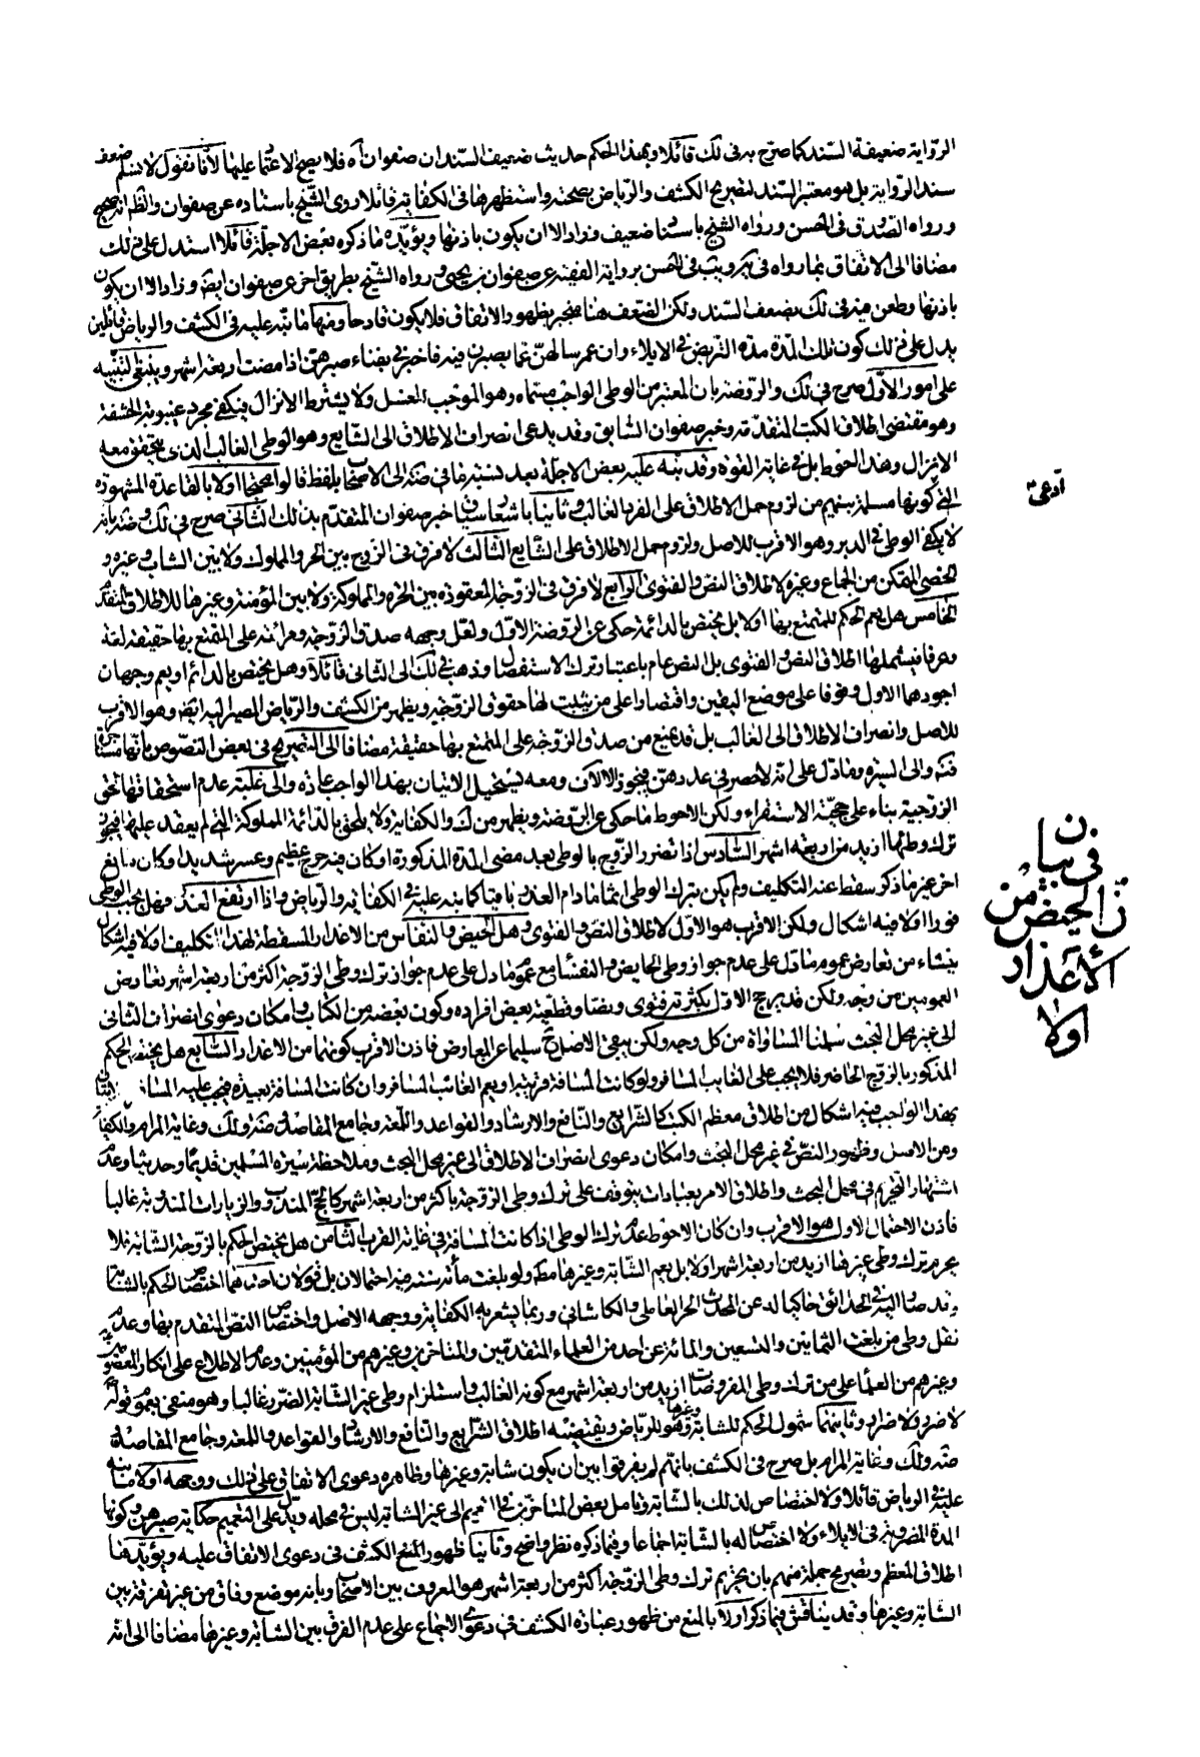 الرواية ضعيفة السند كما صرح به فى لك قائلا وبهذا الحكم حديث ضعيف السند ان صفوان آه فلا يصح الاعتماد عليها لأنا نقول لا نسلم ضعف
سند الرواية بل هو معتبر السند لتصريح الكشف والرياض بصحته واستظهرها فى الكفاية قائلا روى الشيخ باسناده عن صفوان والظاهر انه صحيح
ورواه الصدوق فى الحسن ورواه الشيخ باسناد ضعيف وزاد الا ان يكون باذنها ويؤيده ما ذكره بعض الاجلة قائلا استدل على ذلك
مضافا الى الاتفاق بما رواه فى يب فى الحسن برواية الفقيه عن صفوان بن يحيى ورواه الشيخ بطريق اخر عن صفوان ايضا وزاد الا ان يكون
باذنها وطعن فيه فى لك بضعف السند ولكن الضعف هنا منجبر بظهور الاتفاق فلا يكون قادحا ومنها ما نبه عليه فى الكشف والرياض قائلين
يدل على ذلك كون تلك المدة مدة التربص فى الايلاء وان عمر سالهن عما يصبرن فيه فاخبر بفناء صبرهن اذا مضت اربعة اشهر وينبغى لتنبيه
على امور الاول صرح فى لك والروضة بان المعتبر من الوطى الواجب مسماه وهو الموجب للغسل ولا يشترط الانزال فيكفى مجرد غيبوبة الحشفة
وهو مقتضى اطلاق الكتب المتقدمة وخبر صفوان السابق وقد يدعى انصراف الاطلاق الى الشايع وهو الوطى الغالب الذى يتحقق معه
الانزال وهذا احوط بل فى غاية القوة وقد نبه عليه بعض الاجلة بعد نسبة ما فى ضه الى الاصحاب بلفظ قالوا محتجا اولا بالقاعدة المشهورة
التى كونها مسلمة بينهم من لزوم حمل الاطلاق على الفرد الغالب وثانيا باشعار سياق خبر صفوان المتقدم بذلك الثانى صرح فى لك وضه بانه
لا يكفى الوطى فى الدبر وهو الاقرب للاصل ولزوم حمل الاطلاق على الشايع الثالث لا فرق فى الزوج بين الحر والمملوك ولا بين الشاب وغيره و
الخصى المتمكن من الجماع وغيره لاطلاق النص والفتوى الرابع لا فرق فى الزوجة المعقودة بين الحرة والمملوكة ولا بين المؤمنة وغيرها للاطلاق المتقدم
الخامس هل يعم الحكم للمتمتع بها اولا بل يختص بالدائمة حكى عن الروضة الاول ولعل وجهه صدق الزوجة ومرائة على المتمتع بها حقيقة لغة
وعرفا فيشملها اطلاق النص والفتوى بل النص عام باعتبار ترك الاستفصال وذهب فى لك الى الثانى قائلا وهل يختص بالدائم او يعم وجهان
اجودهما الاول وقوفا على موضع اليقين واقتصارا على من يثبت لها حقوق الزوجية ويظهر من الكشف والرياض المصير اليه ايضا وهو الاقرب
للاصل وانصراف الاطلاق الى الغالب بل قد يمنع من صدق الزوجة على المتمتع بها حقيقة مضافا الى التصريح فى بعض النصوص بانها مستاجرة
والى السيرة وما دل على انه لا حصر فى عددهن فيجوز الالاف ومعه يستحيل الاتيان بهذا الواجب عادة والى غلبة عدم استحقاقها لحقوق
الزوجية بناء على حجية الاستقراء ولكن الاحوط ما حكى عن الروضة ويظهر من لك والكفاية ولا يلحق بالدائمة المملوكة التى لم يعقد عليها فيجوز
ترك وطئها ازيد من اربعة اشهر السادس اذا تضرر الزوج بالوطى بعد مضى المدة المذكورة او كان فيه حرج عظيم وعسر شديد او كان مانع
اخر غير ما ذكر سقط عنه التكليف ولم يكن بترك الوطى اثما ما دام العذر باقيا كما نبه عليه فى الكفاية والرياض واذا ارتفع العذر فهل يجب الوطى
فورا اولا فيه اشكال ولكن الاقرب هو الاول لاطلاق النص والفتوى وهل الحيض والنفاس من الاعذار المسقطة لهذا التكليف اولا فيه اشكال
ينشاء من تعارض عموم ما دل على عدم جواز وطى الحايض والنفساء مع عموم ما دل على عدم جواز ترك وطى الزوجة اكثر من اربعة اشهر تعارض
العمومين من وجه ولكن قد يرجح الاول بكثرته فتوى ونصا وقطعية بعض افراده وكون بعضه من الكتاب وامكان دعوى انصراف الثانى
الى غير محل البحث سلمنا المساواة من كل وجه ولكن يبقى الاصل ح سليما عن المعارض فاذن الاقرب كونهما من الاعذار السابع هل يختص الحكم
المذكور بالزوج الحاضر فلا يجب على الغايب المسافر ولو كانت المسافة قريبة او يعم الغائب المسافر وان كانت المسافة بعيدة فيجب عليه
بهذا الواجب فيه اشكال من اطلاق معظم الكتب كالشرايع والنافع والارشاد والقواعد واللمعة وجامع المقاصد وضه ولك وغاية المرام والكفاية
ومن الاصل وظهور النص فى غير محل البحث وامكان دعوى انصراف الاطلاق الى غير محل البحث وملاحظة سيرة المسلمين قديما وحديثا وعدم
اشتهار التحريم فى محل البحث واطلاق الامر بعبادات يتوقف على ترك وطى الزوجة باكثر من اربعة اشهر كالحج المندوب والزيارات المندوبة غالبا
فاذن الاحتمال الاول هو الاقرب وان كان الاحوط عدم ترك الوطى اذا كانت المسافة فى غاية القرب الثامن هل يختص الحكم بالزوجة الشابة فلا
يحرم ترك وطى غيرها ازيد من اربعة اشهر اولا بل يعم الشابة وغيرها مط ولو بلغت مأة سنة فيه احتمالان بل قولان احدهما اختصاص الحكم بالشابة
وقد صار اليه فى الحدائق حاكيا له عن المحدث الحر العاملى والكاشانى وربما يشعر به الكفاية ووجهه الاصل واختصاص النص المتقدم بها وعدم
نقل وطى من بلغت الثمانين والتسعين والمائة عن احد من العلماء المتقدمين والمتاخرين وغيرهم من المؤمنين وعدم الاطلاع على انكار المعصومين
وغيرهم من العلماء على من ترك وطى المفروضات ازيد من اربعة اشهر مع كونه الغالب واستلزام وطى غير الشابة الضرر غالبا وهو منفى بعموم قوله
لا ضرر ولا ضرار وثانيهما شمول الحكم للشابة وغيرها وهو للرياض ويقتضيه اطلاق الشرايع والنافع والارشاد والقواعد واللمعة وجامع المقاصد
ضه ولك وغاية المرام بل صرح فى الكشف بانهم لم يفرقوا بين ان يكون شابة وغيرها وظاهره دعوى الاتفاق على ذلك ووجهه اولا ما نبه
عليه فى الرياض قائلا ولا اختصاص لذلك بالشابة وتامل بعض المتاخرين فى التعميم الى غير الشابة ليس فى محله ويدل على التعميم حكاية صبرهن وكونها
المدة المضروبة فى الايلاء ولا اختصاص له بالشابة اجماعا وفيما ذكره نظر واضح وثانيا ظهور الكشف فى دعوى الاتفاق عليه ويؤيدها
اطلاق المعظم وتصريح جملة منهم بان تحريم ترك وطى الزوجة اكثر من اربعة اشهر هو المعروف بين الاصحاب وبانه موضع وفاق من غير تفرقة بين
الشابة وغيرها وقد يناقش فيما ذكر اولا بالمنع من ظهور عبارة الكشف فى دعوى الاجماع على عدم الفرق بين الشابة وغيرها مضافا الى انه
ادعى
فى بيان
ان الحيض من
الاعذار
اولا